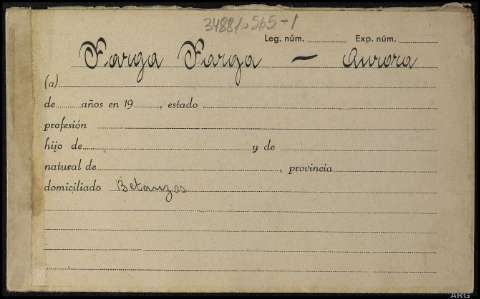 34881, 565-1
Leg. núm. Exp. núm.
Farga Farga - Aurora
(a)
de años en 19 , estado
profesión
hijo de y de
natural de , provincia
domiciliado Betanzos
ARG